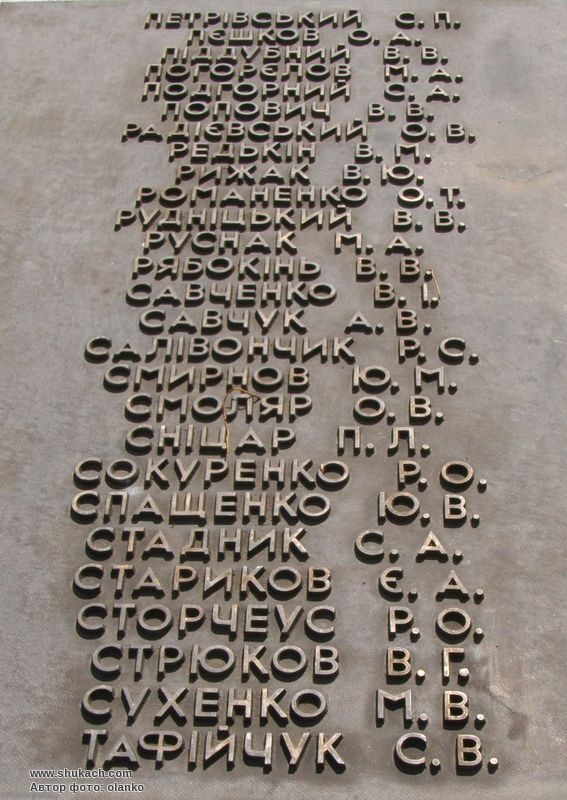 ПЕТРІВСЬКИЙ С. П.
ПЄШКОВ О. А.
ПІДДУБНИЙ В. В.
ПОГОРЄЛОВ М. А.
ПОДГОРНИЙ С. А.
ПОПОВИЧ В. В.
РАДІЄВСЬКИЙ О. В.
РЕДЬКІН В. М.
РИЖАК В. Ю.
РОМАНЕНКО О. Т.
РУДНІЦЬКИЙ В. В.
РУСНАК М. А.
РЯБОКІНЬ В. В.
САВЧЕНКО В. І.
САВЧУК А. В.
САЛІВОНЧИК Р. С.
СМИРНОВ Ю. М.
СМОЛЯР О. В.
СНІЦАР П. Л.
СОКУРЕНКО Р. О.
СПАЩЕНКО Ю. В.
СТАДНИК С. А.
СТАРИКОВ Є. А.
СТОРЧЕУС Р. О.
СТРЮКОВ В. Г.
СУХЕНКО М. В.
ТАФІЙЧУК С. В.
www.shukach.com
Автор фото: olanko